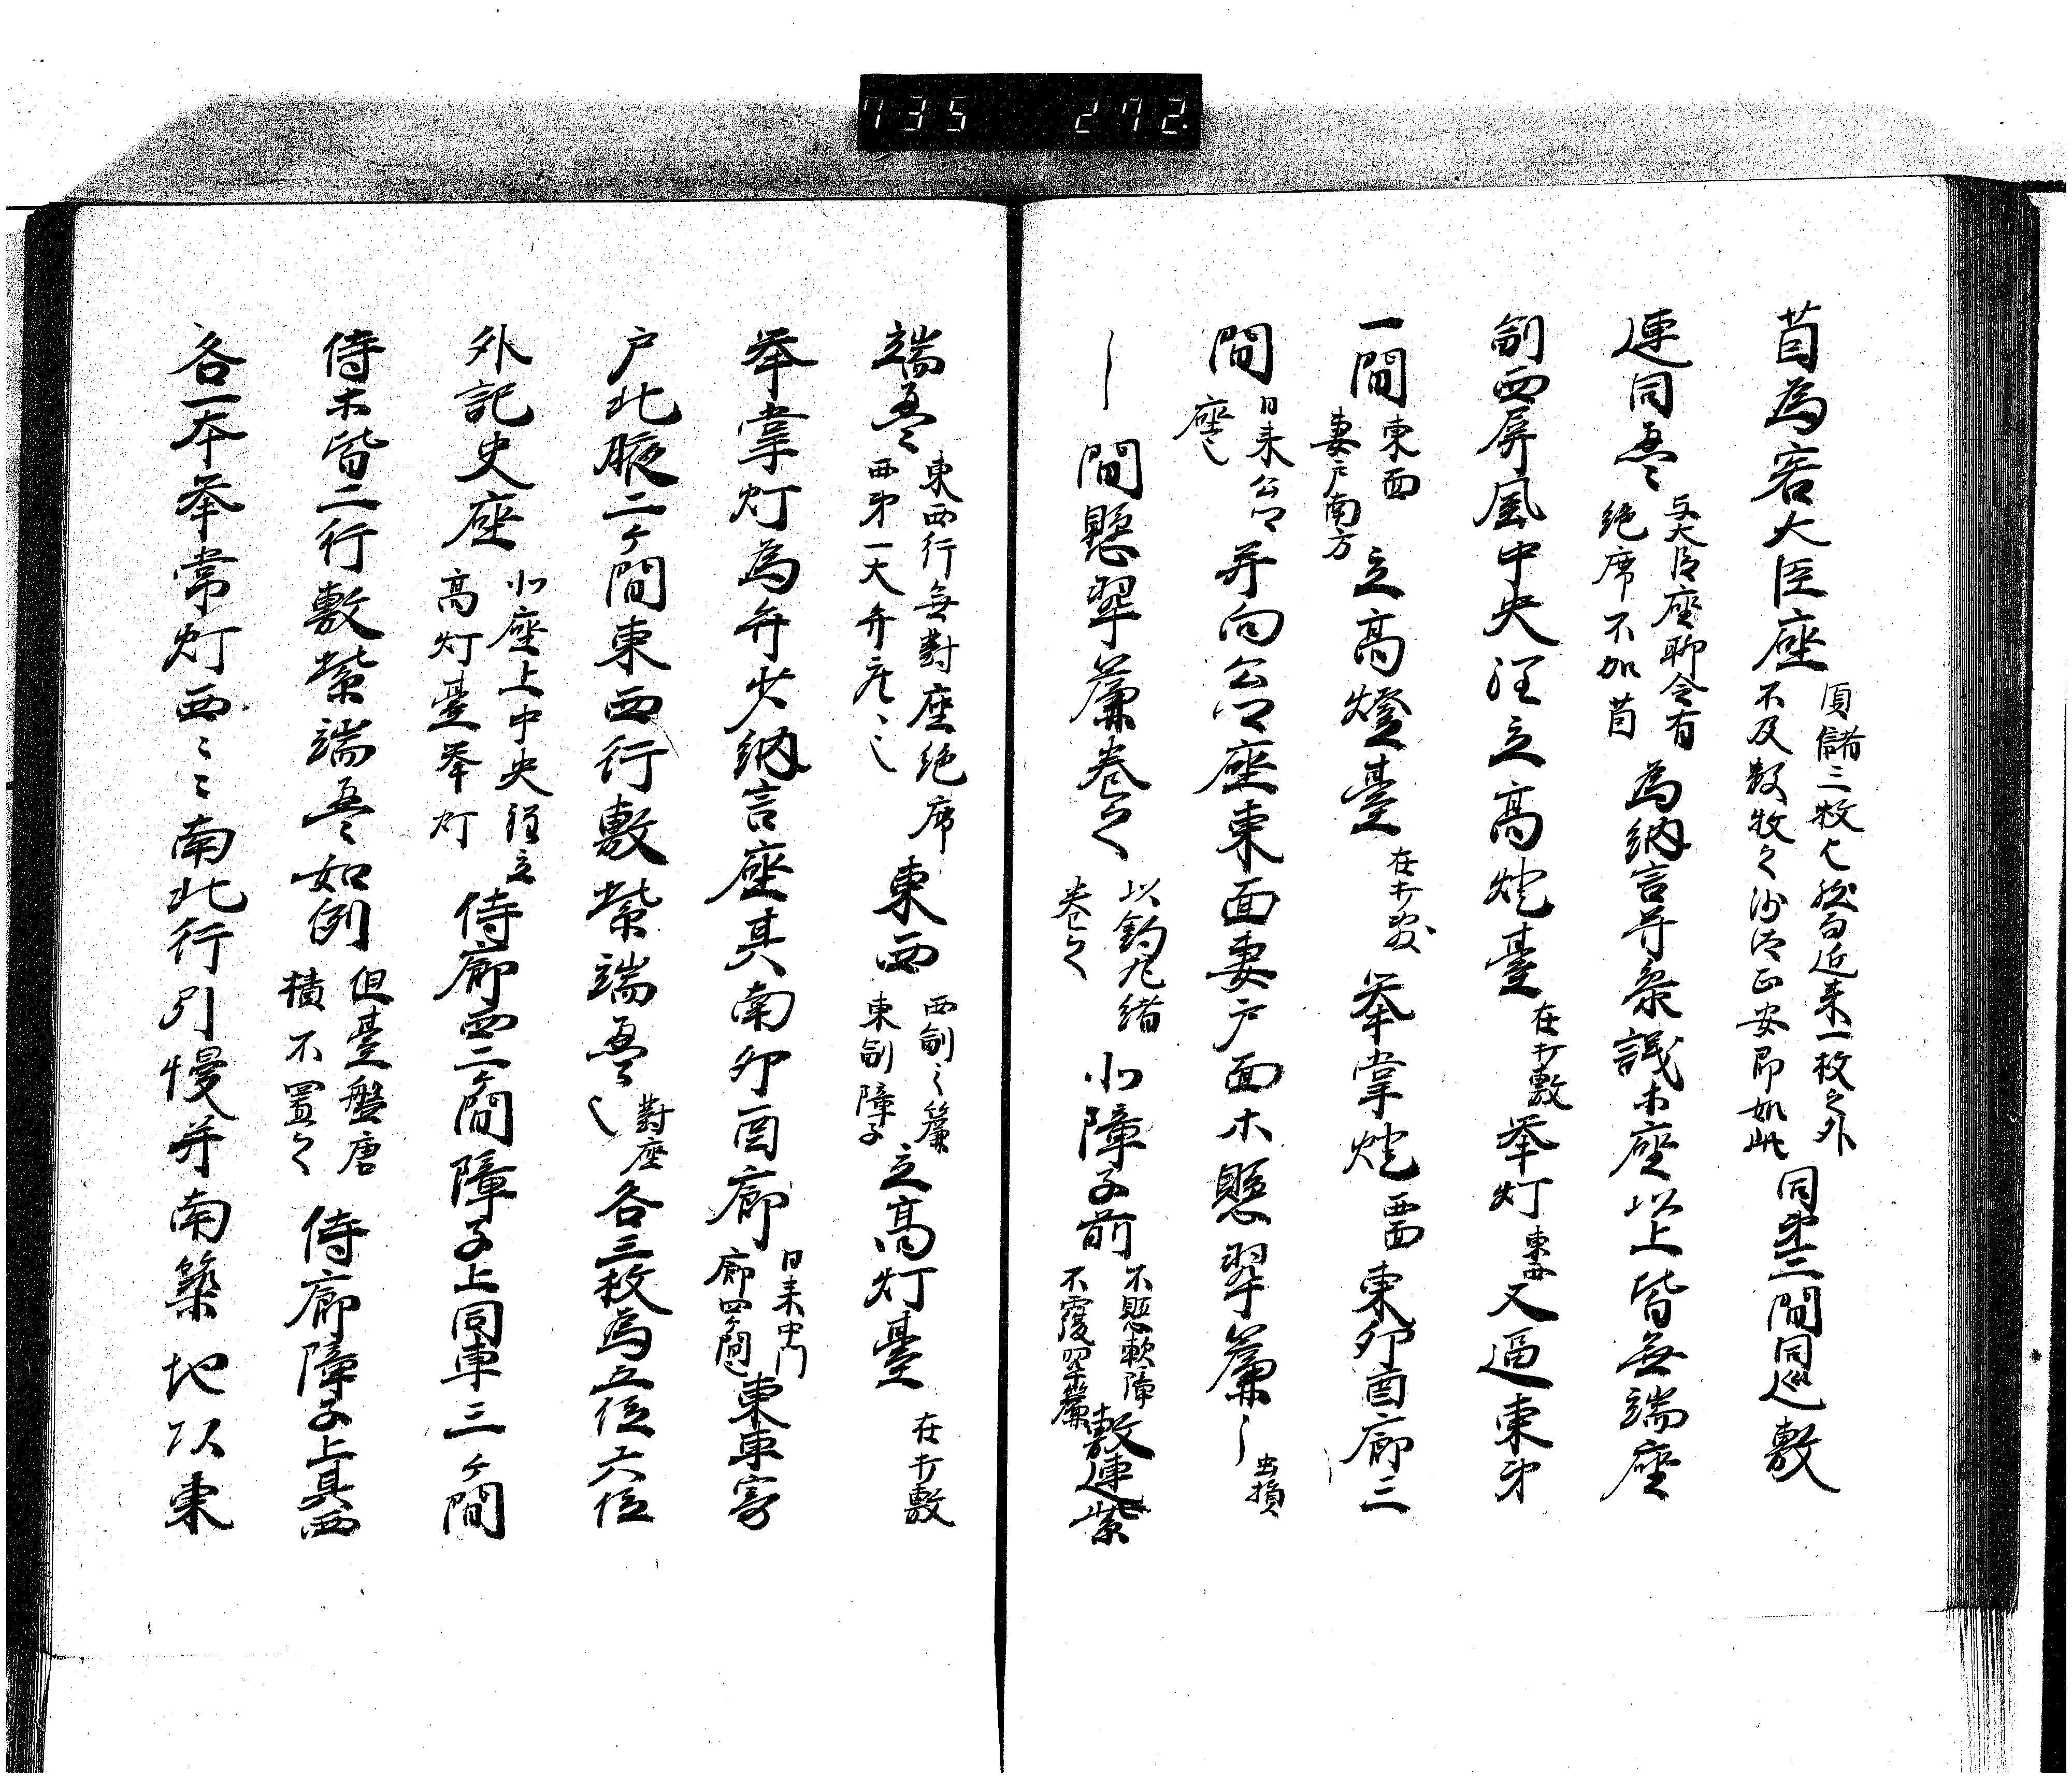 735 272.
茵為客大臣座 須儲三枚也然而近来一枚之外
不及数枚之沙汰 即如此 同第三間同 敷
連同畳 与大臣座聊令有
絶席不加茵 為納言并参議木座以上皆無端座
副西屏風中央 立高燈臺 在打敷 挙灯 東西 又逼東第
一間 東面
妻戸南方 立高燈臺 在打敷 挙掌燈 西面 東卯酉廊三
間 日来公卿
座也 并向公卿座東面妻戸面木懸翠簾 虫損
間懸翠簾巻之 以鈎丸緒
巻之 北障子前 不懸軟障
不覆翠簾 敷連紫
端畳 東西行無對座絶席
西第一大弁座也 東西 西副之簾
東副障子 立高灯臺 在打敷
挙掌灯為弁少納言座其南卯酉廊 日来中門
廊四ヶ間也 東車寄
戸北腋二ヶ間東西行敷紫端畳 對座 各三枚為五位六位
外記史座 北座上中央 立
高灯臺挙灯 侍廊西二ヶ間障子上同車三ヶ間
侍木皆二行敷紫端畳如例 但臺盤唐
樻不置之 侍廊障子上其西
各一本挙常灯西々々南北行引幔并南築地以東